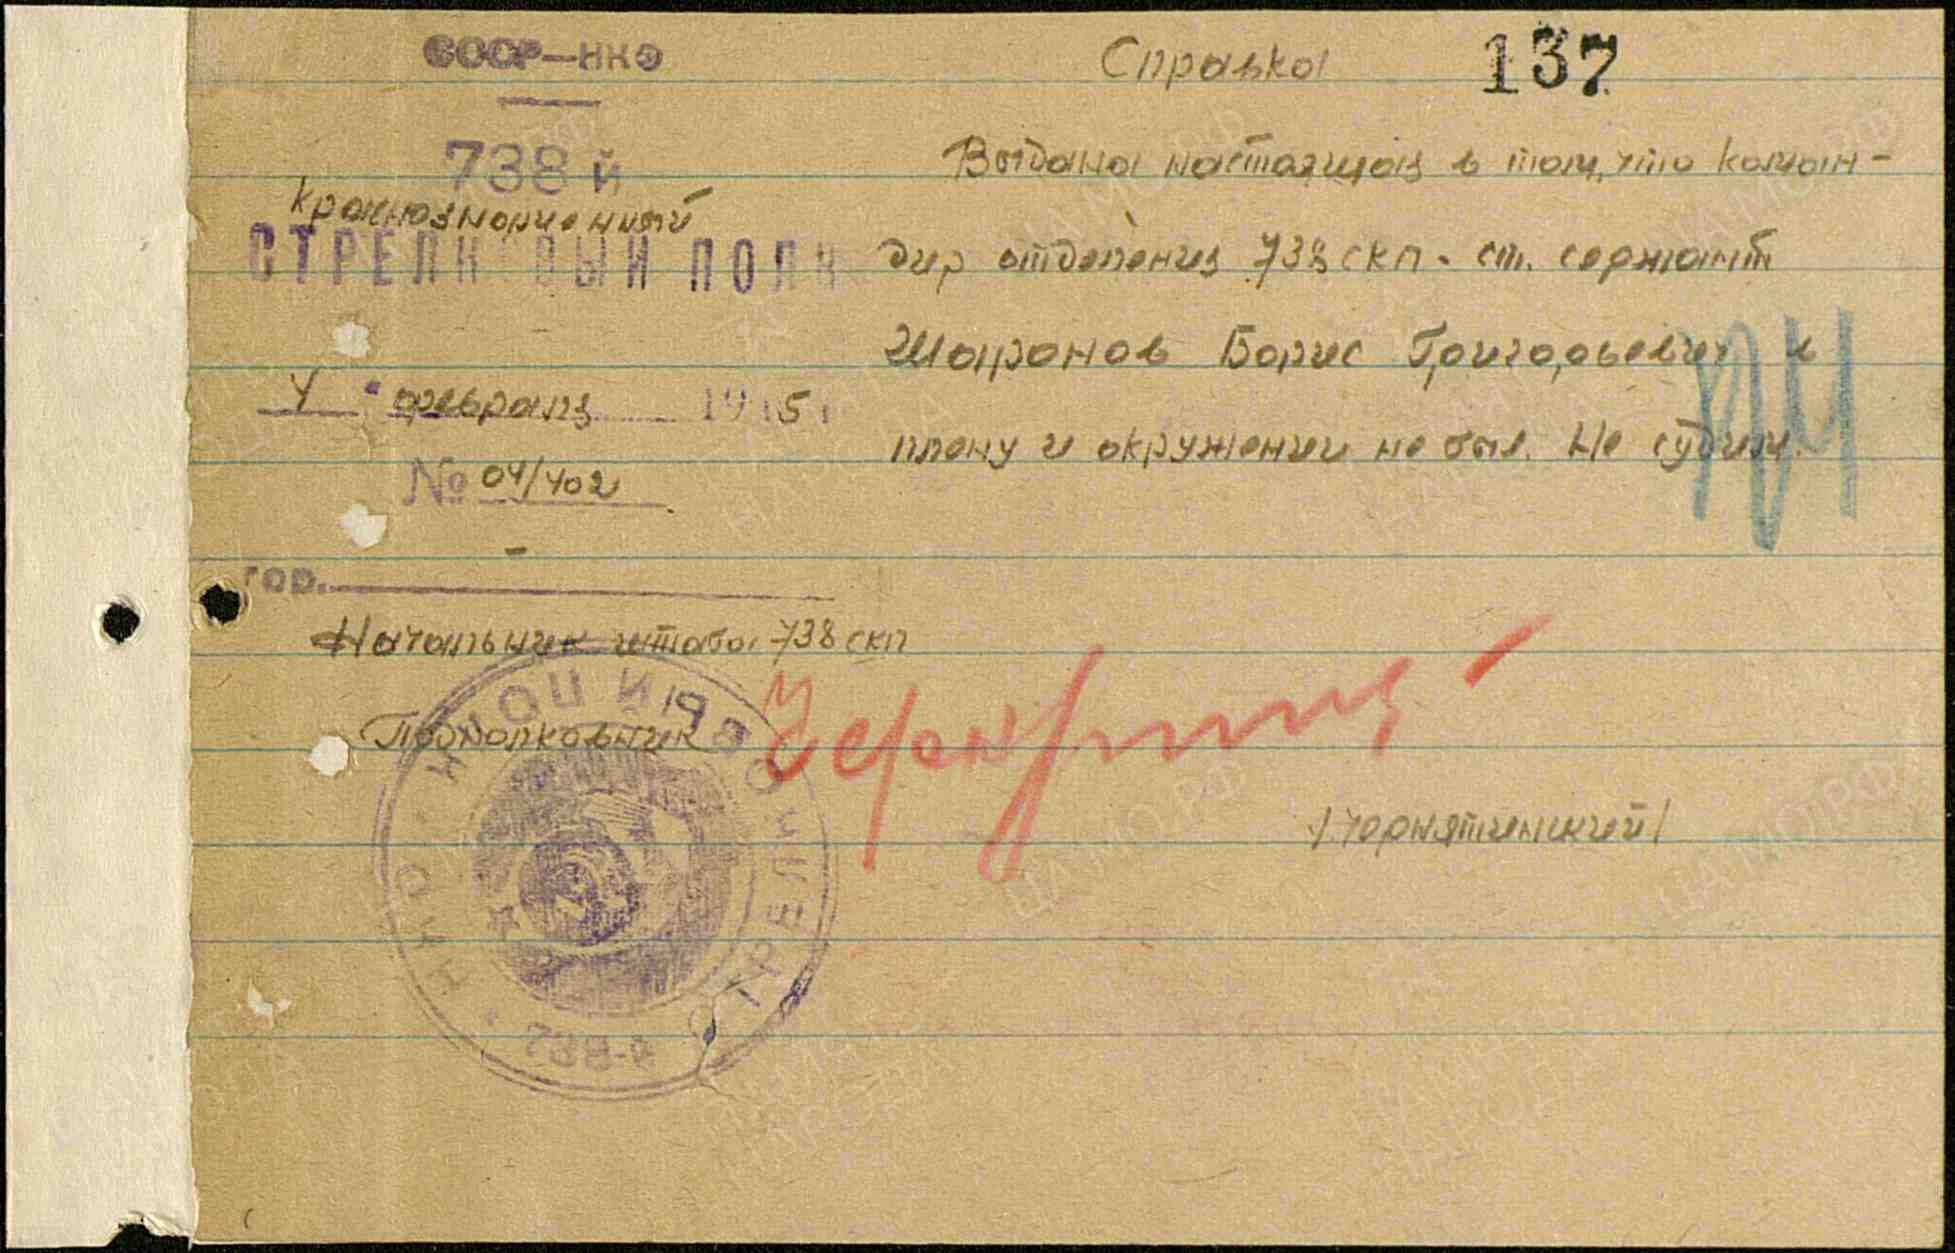 СССР—НКО
738 й
Краснознаменный
СТРЕЛКОВЫЙ ПОЛК
4 " февраля 1945 г
№ 04/402
гор.
Справка
137
Выдана настоящая в том, что коман-
дир отделения 738 скп. ст. сержант
Шапранов Борис Григорьевич в
плену и окружении не был. Не судим.
Начальник штаба 738 скп
Подполковник
/Чернятинский/
СТРЕЛКОВЫЙ ПОЛК · НКО ·